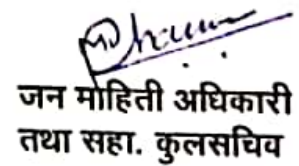 जन मोहिती अधिकारी
तथा सहा. कुलसचिव